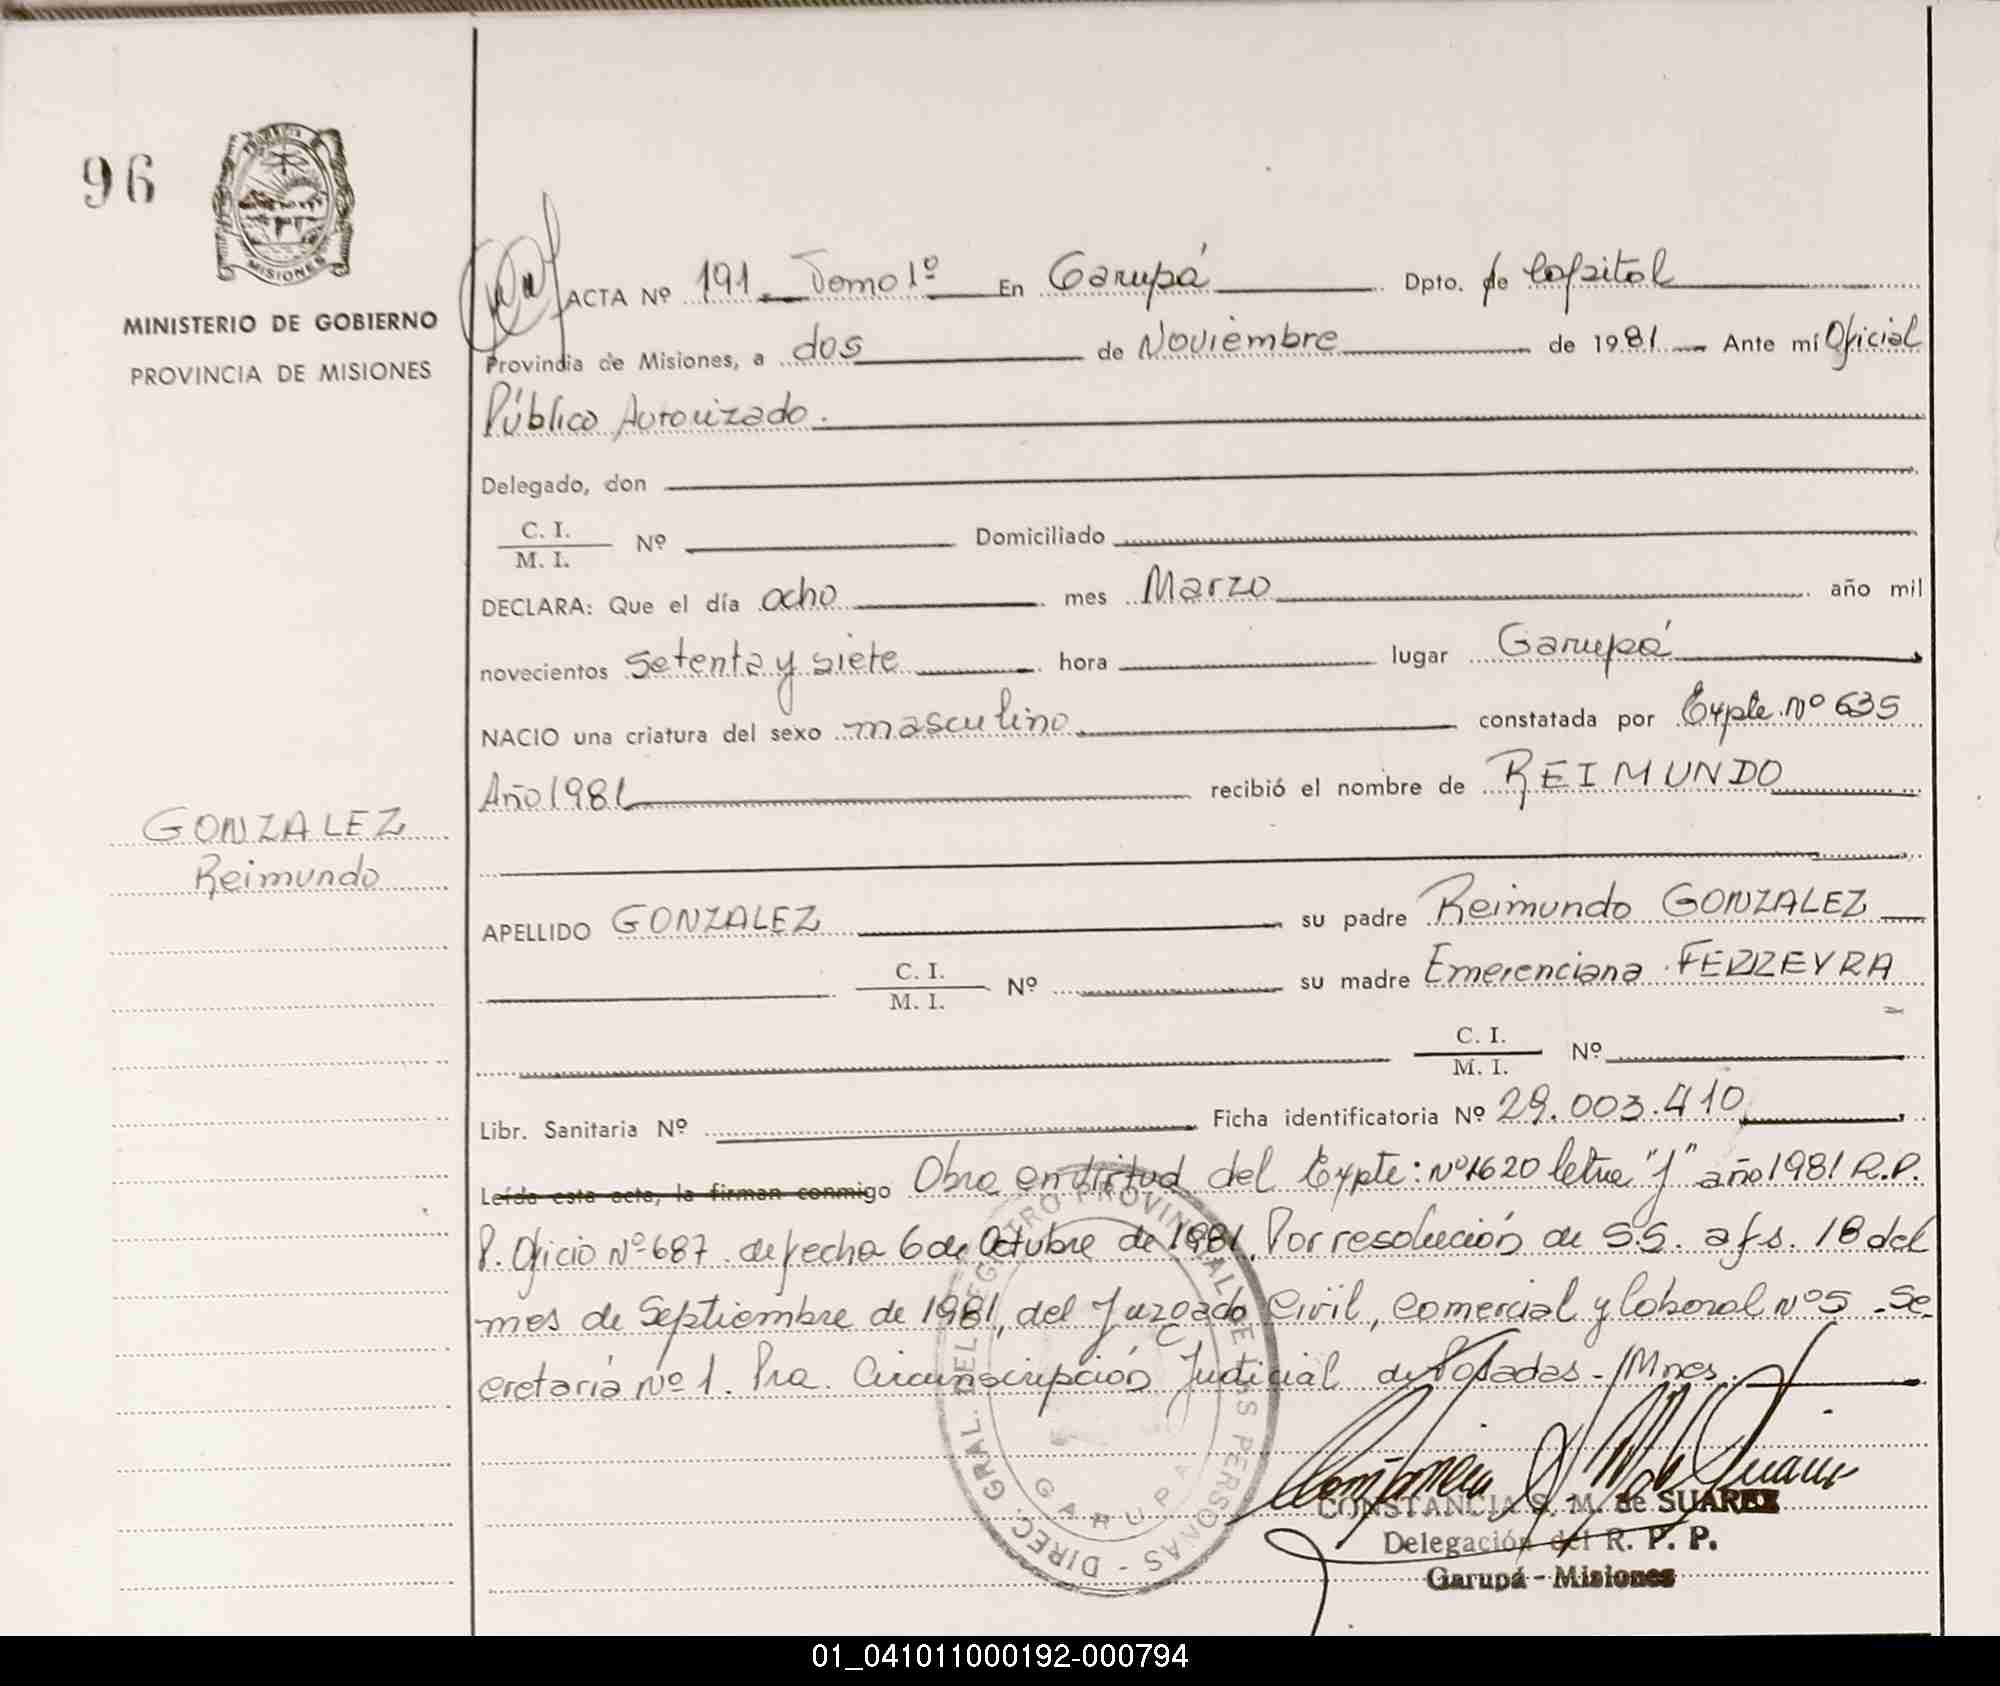 96
PROVINCIA
MISIONES
MINISTERIO DE GOBIERNO
PROVINCIA DE MISIONES
ACTA Nº 191. Tomo 1º En Garupá Dpto. de Capital
Provincia de Misiones, a dos de Noviembre de 1981 Ante mí Oficial
Público Autorizado.
Delegado, don
C. I.
M. I. Nº Domiciliado
DECLARA: Que el día ocho mes Marzo año mil
novecientos setenta y siete hora lugar Garupá
NACIO una criatura del sexo masculino constatada por Expte. Nº 635
Año 1981 recibió el nombre de REIMUNDO
GONZALEZ
Reimundo
APELLIDO GONZALEZ su padre Reimundo GONZALEZ
C. I.
M. I. Nº su madre Emerenciana FERREYRA
C. I.
M. I. Nº
Libr. Sanitaria Nº Ficha identificatoria Nº 29.003.410
Leída esta acta, la firman conmigo Obra en virtud del Expte: Nº 1620 letra "J" año 1981 R.P.
P. Oficio Nº 687 de fecha 6 de Octubre de 1981. Por resolución de S.S. a fs. 18 del
mes de Septiembre de 1981, del Juzgado Civil, Comercial y laboral Nº 5 - Se-
cretaría Nº 1. Pra. Circunscripción Judicial de Posadas - Mnes.
DIREC. GRAL. DEL REGISTRO PROVINCIAL DE LAS PERSONAS -
GARUPA
CONSTANCIA S. M. de SUAREZ
Delegación del R. P. P.
Garupá - Misiones
01_041011000192-000794